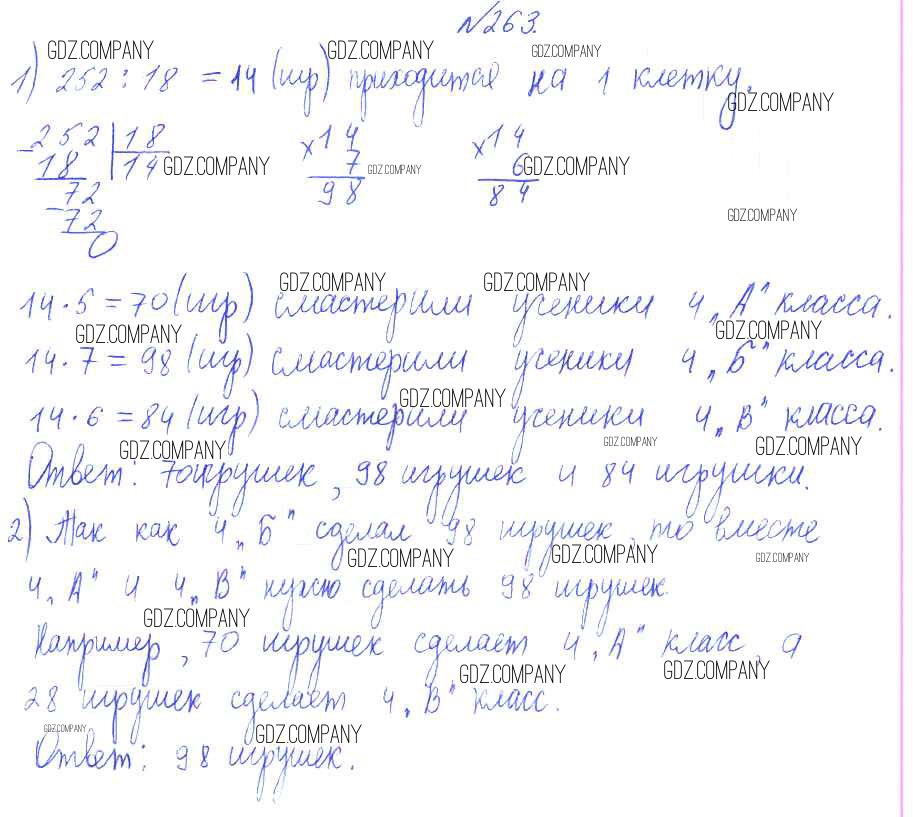 №263.
GDZ.COMPANY GDZ.COMPANY GDZ.COMPANY
1) 252 : 18 = 14 (игр) приходится на 1 клетку.
GDZ.COMPANY
-252 | 18 ×14 ×14
18 14 GDZ.COMPANY 7 GDZ.COMPANY 6 GDZ.COMPANY
72 98 84
-72
GDZ.COMPANY
0
GDZ.COMPANY GDZ.COMPANY
14 · 5 = 70 (игр) смастерили ученики 4 „А" класса.
GDZ.COMPANY GDZ.COMPANY
14 · 7 = 98 (игр) смастерили ученики 4 „Б" класса.
GDZ.COMPANY
14 · 6 = 84 (игр) смастерили ученики 4 „В" класса.
GDZ.COMPANY GDZ.COMPANY GDZ.COMPANY
Ответ: 70 игрушек, 98 игрушек и 84 игрушки.
2) Так как 4 „Б" сделал 98 игрушек, то вместе
GDZ.COMPANY GDZ.COMPANY GDZ.COMPANY
4 „А" и 4 „В" нужно сделать 98 игрушек.
GDZ.COMPANY
Например, 70 игрушек сделает 4 „А" класс, а
GDZ.COMPANY GDZ.COMPANY
28 игрушек сделает 4 „В" класс.
GDZ.COMPANY GDZ.COMPANY
Ответ: 98 игрушек.